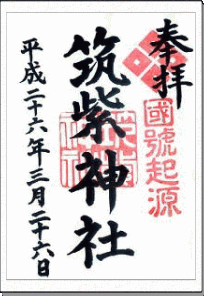 奉拝
國號起源
筑紫神社
平成二十六年三月二十六日